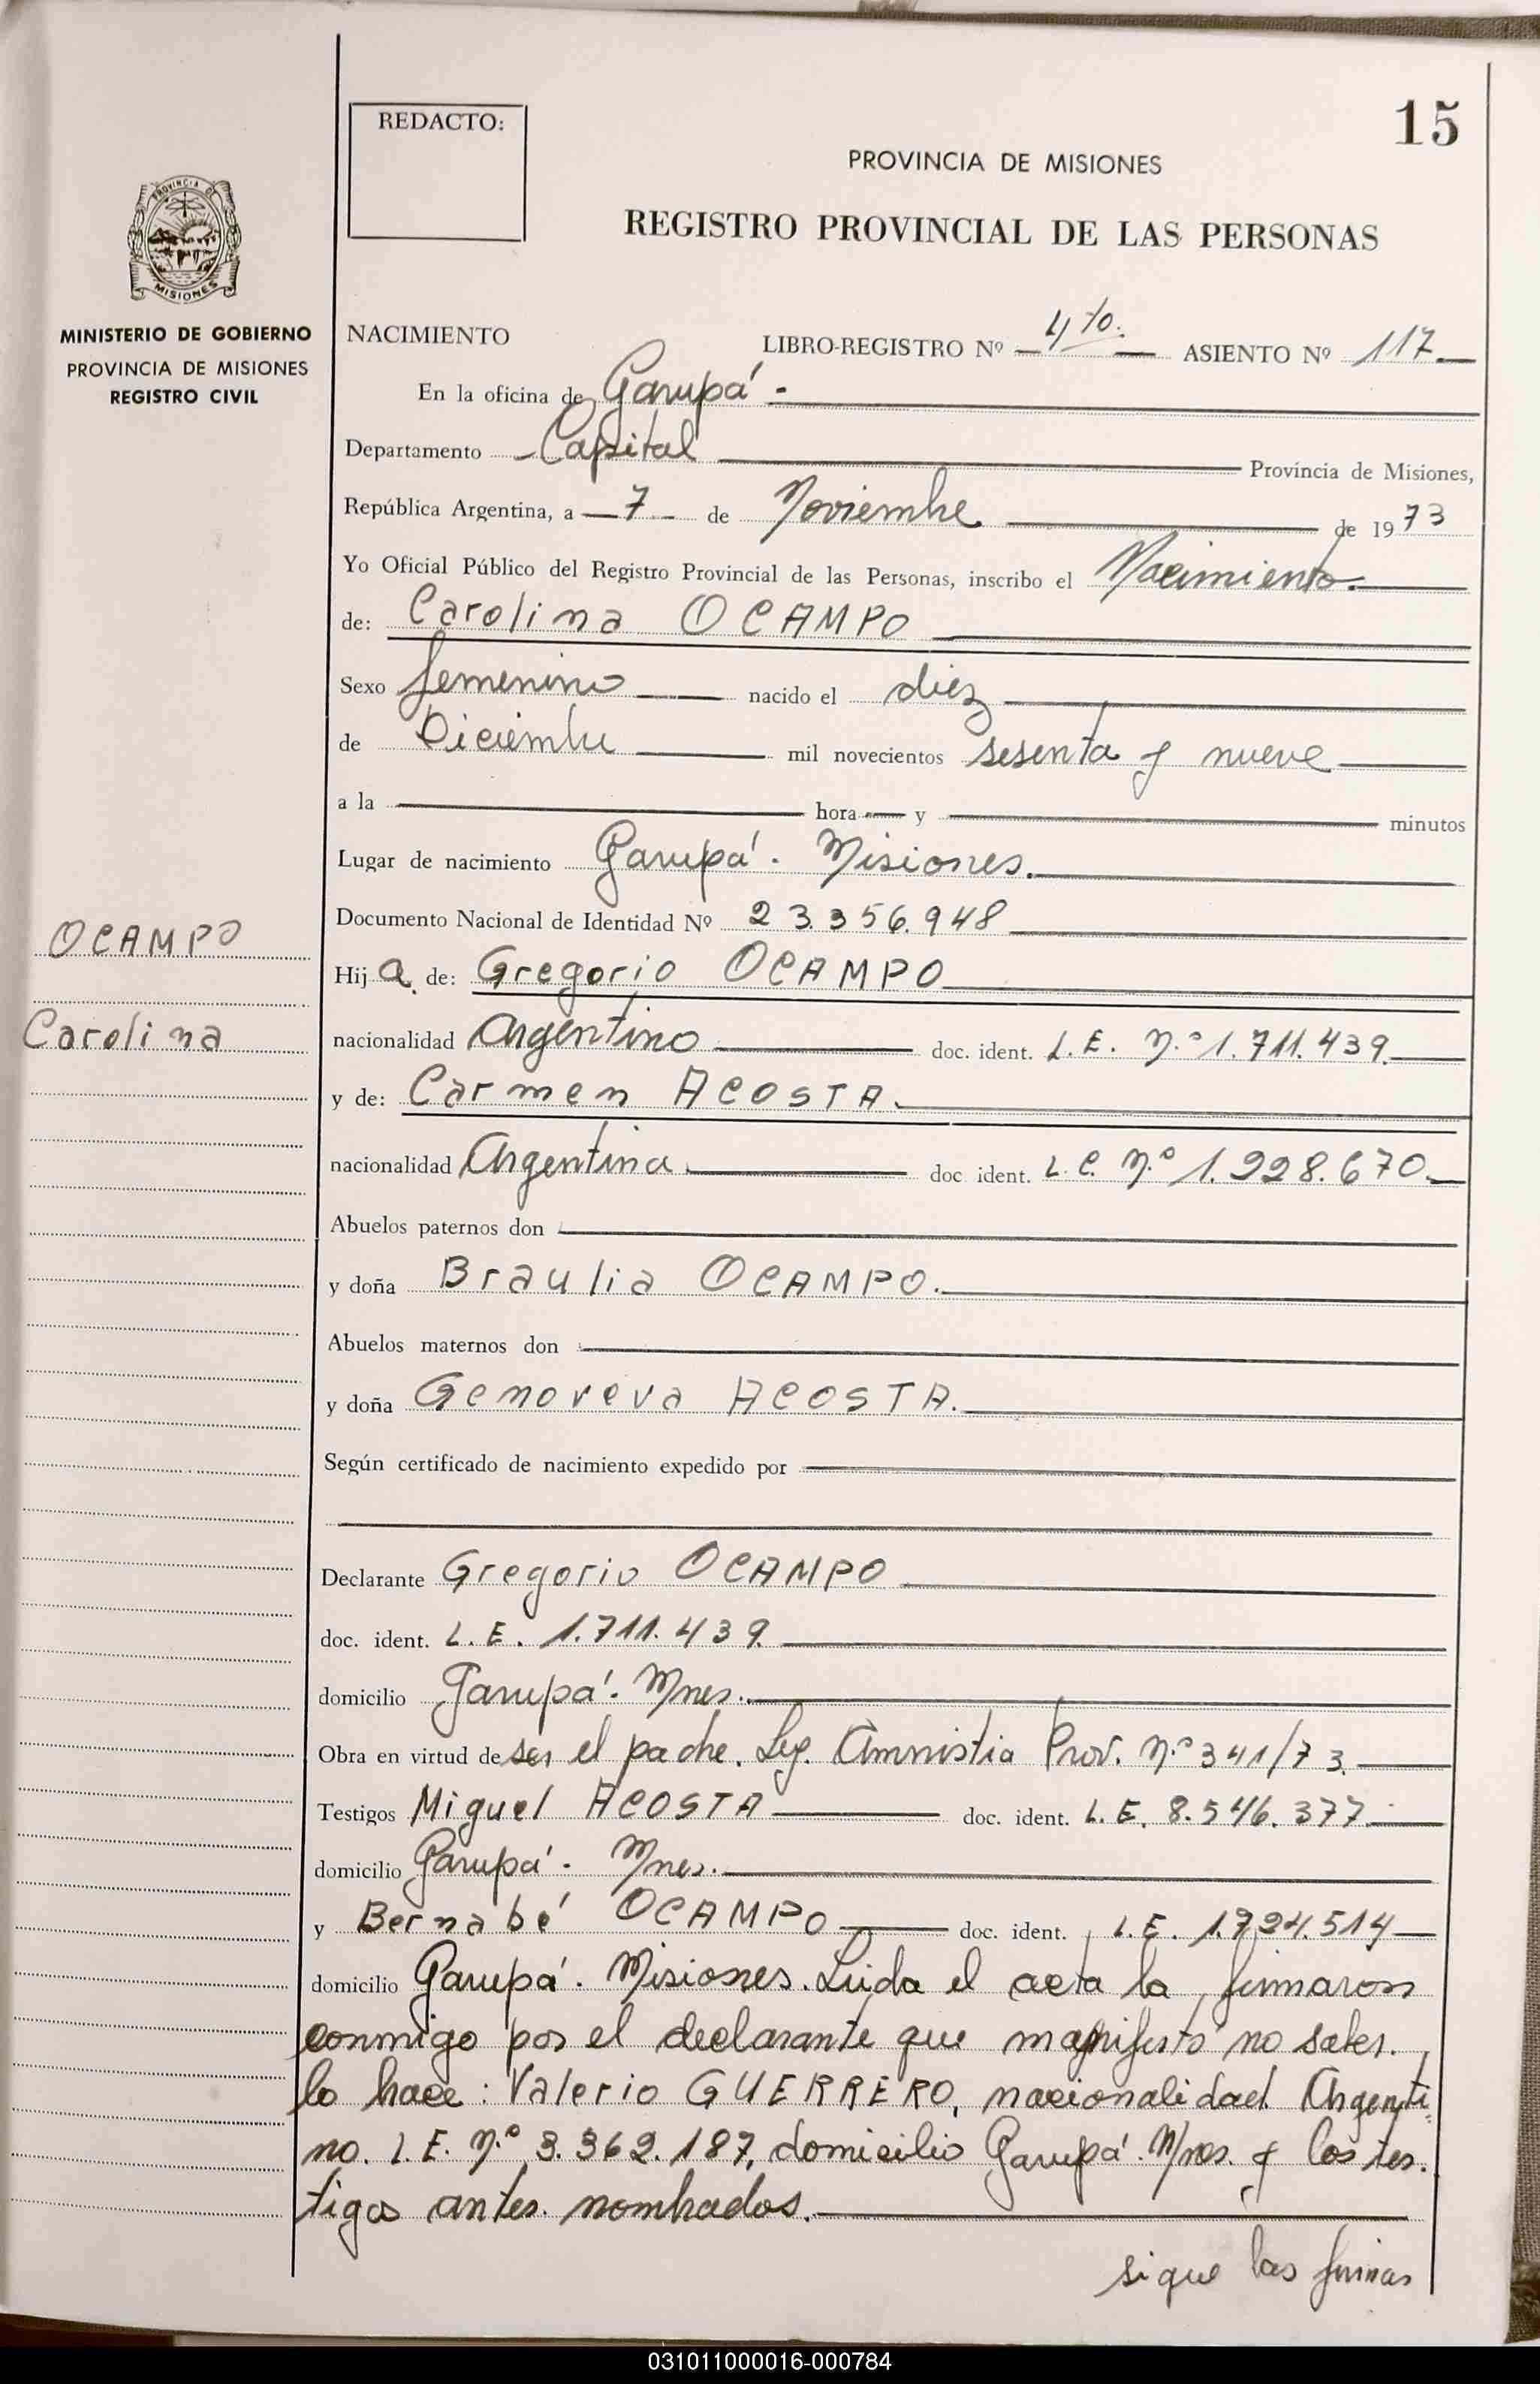 15
REDACTO:
PROVINCIA DE MISIONES
REGISTRO PROVINCIAL DE LAS PERSONAS
PROVINCIA DE
MISIONES
MINISTERIO DE GOBIERNO
PROVINCIA DE MISIONES
REGISTRO CIVIL
NACIMIENTO LIBRO-REGISTRO Nº 4to. ASIENTO Nº 117
En la oficina de Garupá.
Departamento Capital Provincia de Misiones,
República Argentina, a 7 de Noviembre de 1973
Yo Oficial Público del Registro Provincial de las Personas, inscribo el Nacimiento.
de: Carolina OCAMPO
Sexo femenino nacido el diez
de Diciembre mil novecientos sesenta y nueve
a la hora y minutos
Lugar de nacimiento Garupá. Misiones.
Documento Nacional de Identidad Nº 23.356.948
OCAMPO
Carolina
Hij a. de: Gregorio OCAMPO
nacionalidad Argentino doc. ident. L.E. n.º 1.711.439.
y de: Carmen ACOSTA.
nacionalidad Argentina. doc ident. L.C. n.º 1.228.670.
Abuelos paternos don
y doña Braulia OCAMPO.
Abuelos maternos don
y doña Genoveva ACOSTA.
Según certificado de nacimiento expedido por
Declarante Gregorio OCAMPO
doc. ident. L.E. 1.711.439.
domicilio Garupá. Mnes.
Obra en virtud de ser el padre. Ley. Amnistia Prov. n.º 341/73.
Testigos Miguel ACOSTA doc. ident. L.E. 8.546.377.
domicilio Garupá. Mnes.
y Bernabé OCAMPO doc. ident. L.E. 1.724.514
domicilio Garupá. Misiones. Leida el acta la firmaron
conmigo por el declarante que manifestó no saber.
lo hace: Valerio GUERRERO, nacionalidad Argenti-
no. L.E. n.º 3.362.187, domicilio Garupá. Mnes. y los tes.
tigos antes. nombrados.
sigue las firmas
031011000016-000784